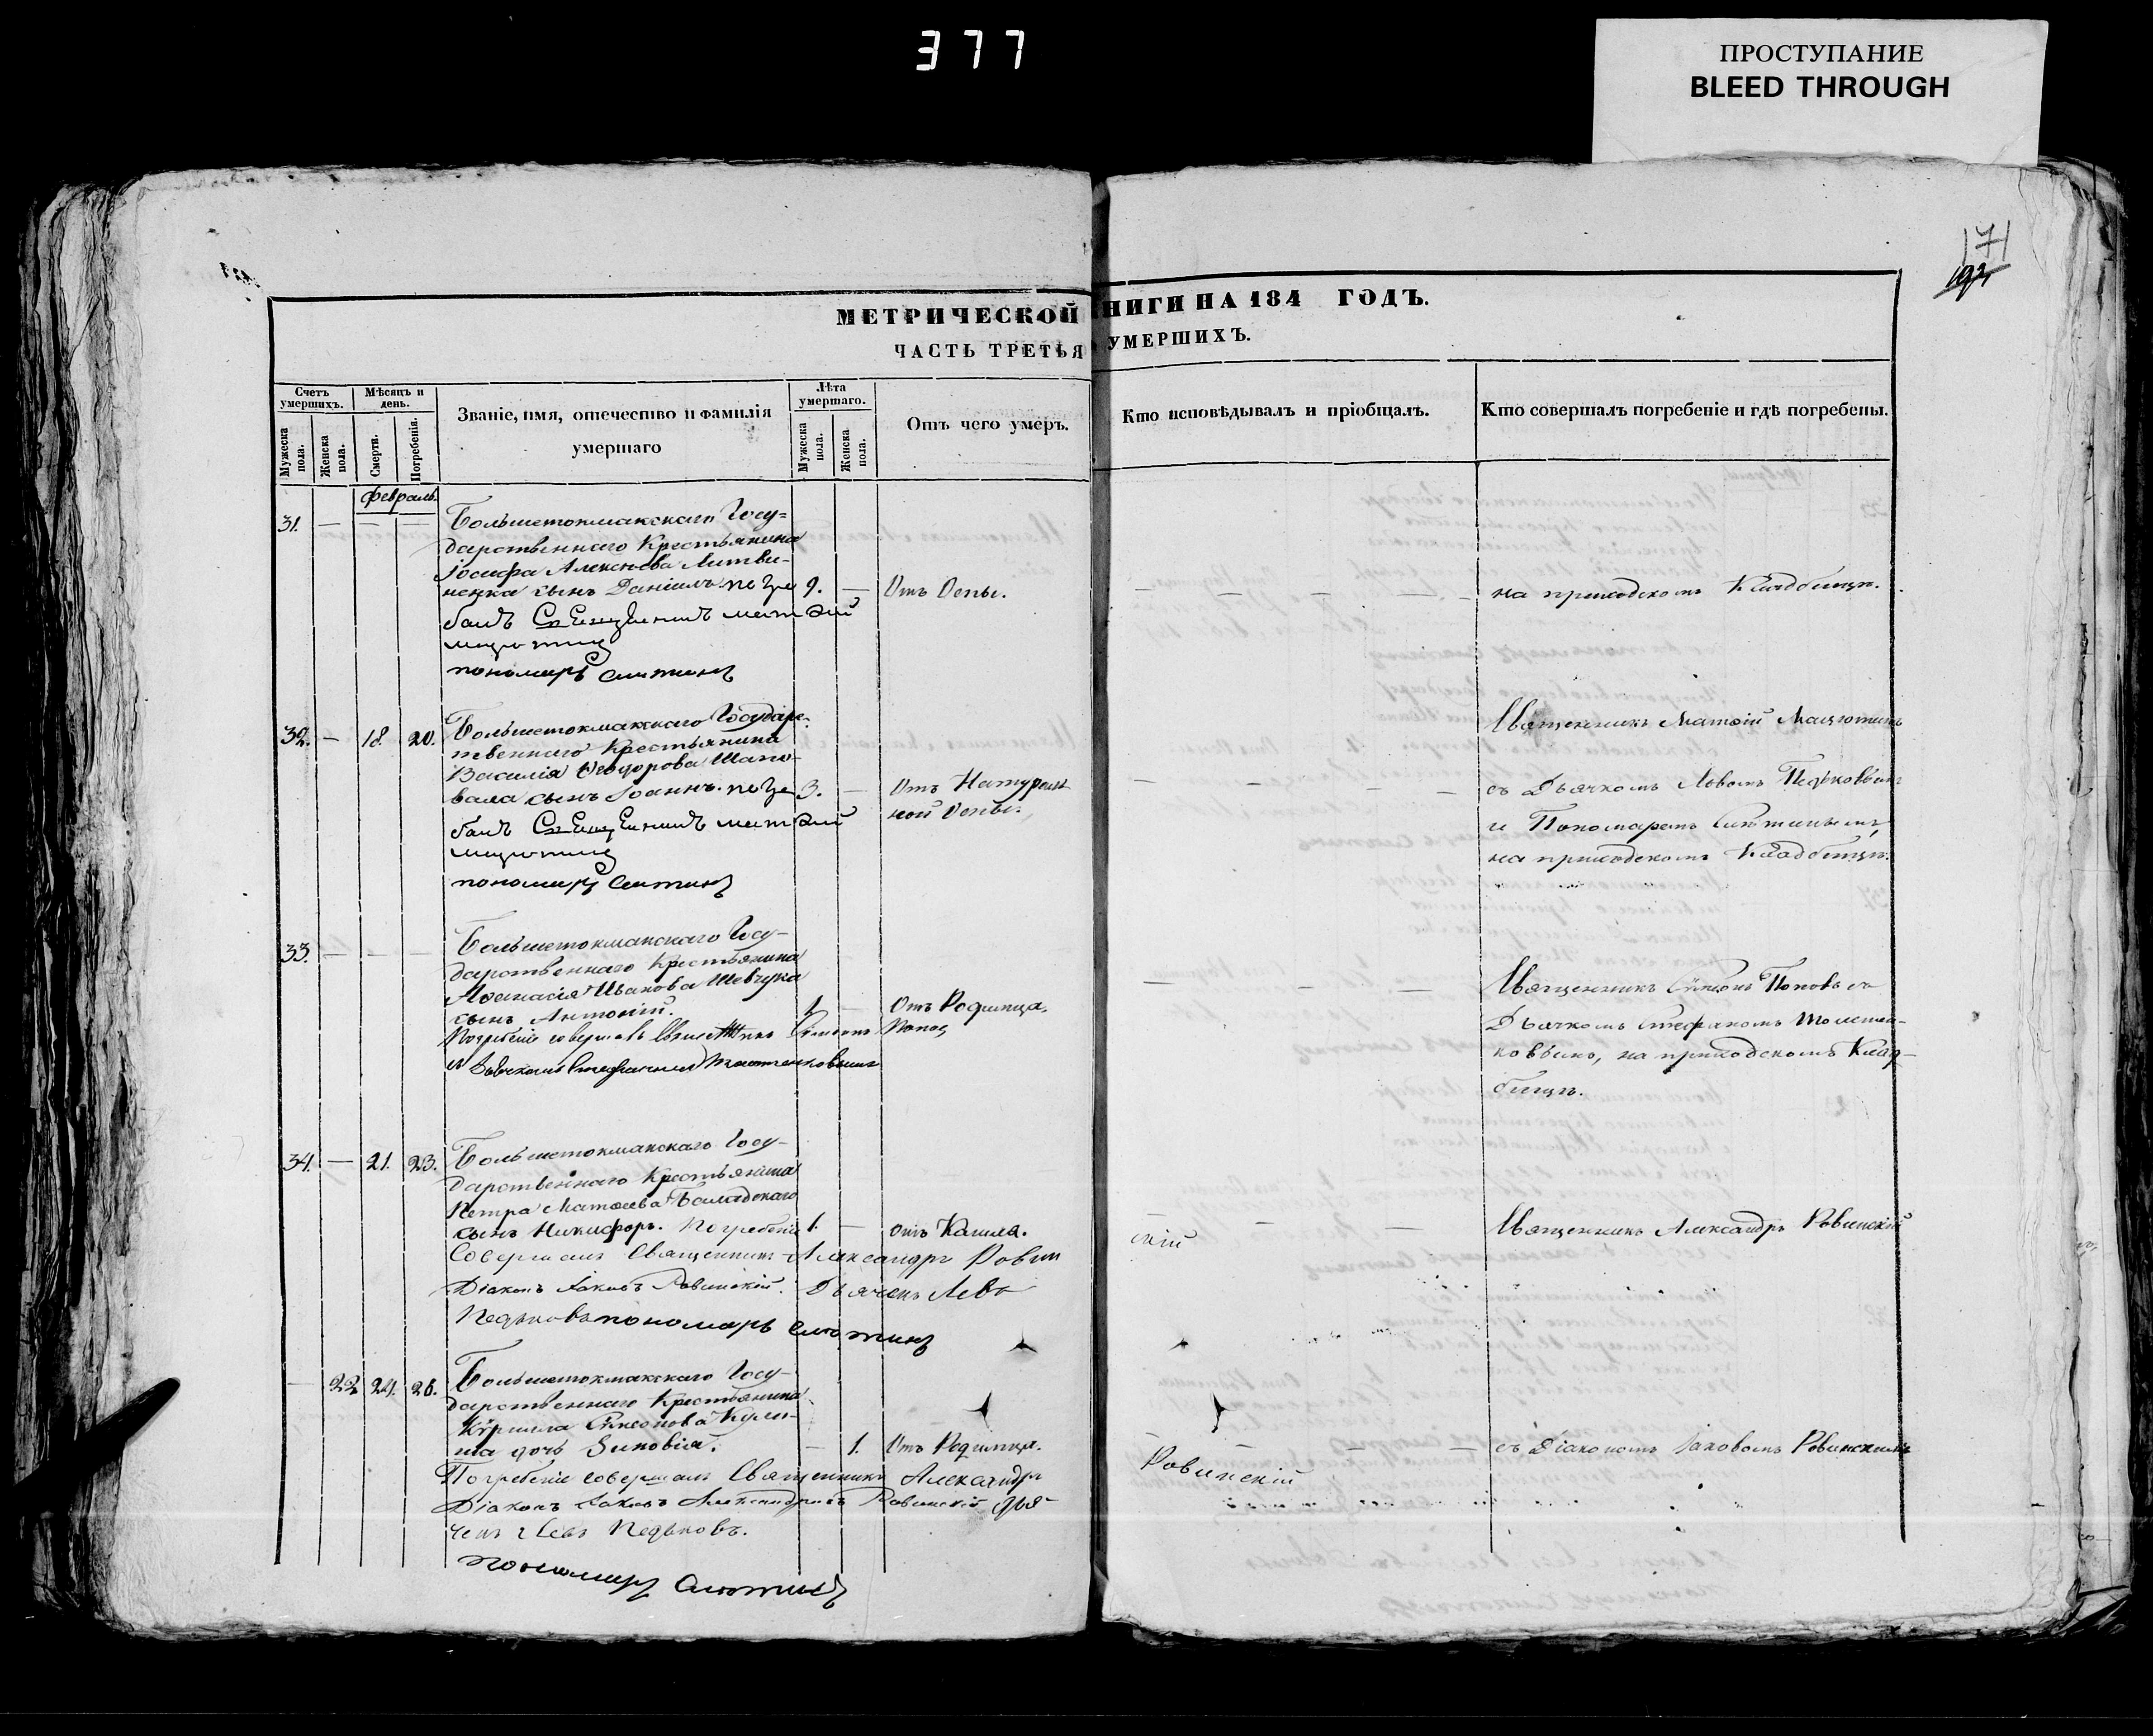 377
ПРОСТУПАНИЕ
BLEED THROUGH
171
МЕТРИЧЕСКОЙ КНИГИ НА 184 ГОДЪ.
ЧАСТЬ ТРЕТЬЯ УМЕРШИХЪ.
Счетъ умершихъ.
Мужеска пола.
Женска пола.
Мѣсяцъ и день.
Смерти.
Погребенія.
Званіе, имя, отечество и фамилія
умершаго
Лѣта умершаго.
Мужеска пола.
Женска пола.
Отъ чего умеръ.
Кто исповѣдывалъ и пріобщалъ.
Кто совершалъ погребеніе и гдѣ погребены.
Февраль.
31. — — — Большетокмакскаго Госу=
дарственнаго Крестьянина
Іосифа Алексѣева Литви-
ненка сынъ Даніилъ 9. — Отъ Оспы. на приходскомъ Кладбищѣ.
пономарь Слютинъ
32. — 18. 20. Большетокмакскаго Государс-
твеннаго Крестьянина
Василія Ѳеодорова Шапо-
вала сынъ Іоаннъ. 3. — Отъ Натураль
ной Оспы.
пономарь Слютинъ
Священникъ Матѳій Мацютинъ
съ Дьячкомъ Львомъ Педьковымъ
и Пономаремъ Слютинымъ,
на приходскомъ Кладбищѣ.
33. — — — Большетокмакскаго Госу-
дарственнаго Крестьянина
Аѳанасія Иванова Шевчука
сынъ Антоній. 1. — Отъ Родимца.
Погребеніе совершалъ Священникъ Симеонъ Попов
съ Дьячкомъ Стефаномъ
Священникъ Симеонъ Поповъ съ
Дьячкомъ Стефаномъ
на приходскомъ Клад-
бищѣ.
34. — 21. 23. Большетокмакскаго Госу-
дарственнаго Крестьянина
Петра Матѳеева
сынъ Никифоръ. Погребеніе 1. — отъ Кашля.
Совершалъ Священникъ Александръ Ровин
скій
Діаконъ Іаковъ Ровинскій. Дьячекъ Левъ
Педьковъ пономарь Слютинъ
Священникъ Александръ Ровинскій
— 22 24. 26. Большетокмакскаго Госу-
дарственнаго Крестьянина
Кирилла Симеонова
дочь Зиновія. — 1. Отъ Родимца.
Погребеніе совершалъ Священникъ Александръ
Ровинскій
Діаконъ Іаковъ Александровъ Ровинскій Дья-
чекъ Левъ Педьковъ.
пономарь Слютинъ
съ Діакономъ Іаковомъ Ровинскимъ